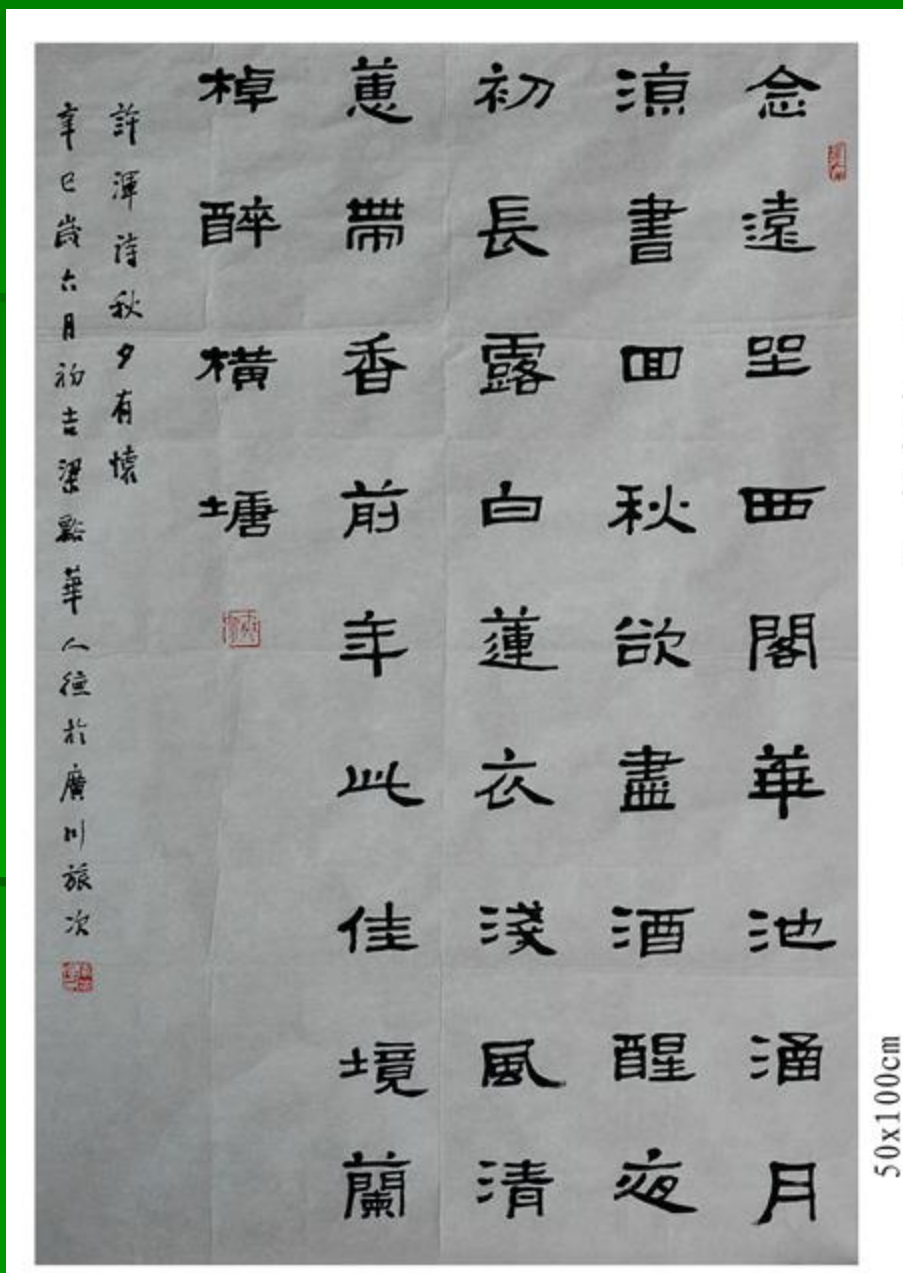 念遠坐西閣華池涵月
涼書回秋欲盡酒醒夜
初長露白蓮衣淺風清
蕙帶香前年此佳境蘭
棹醉橫塘
許渾詩秋夕有懷
辛巳歲六月初吉梁谿華人德於廣川旅次
50x100cm